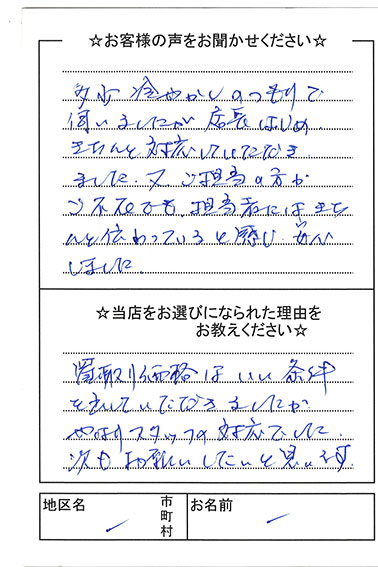 ☆お客様の声をお聞かせください☆
多少 冷やかしのつもりで
伺いましたが 店長はじめ
きちんと対応していただき
ました。又、ご担当の方が
ご不在でも、担当者にはきち
んと伝わっていると感じ 安心
しました。
☆当店をお選びになられた理由を
お教えください☆
買取り価格は いい 条件
を出していただきましたが
やはりスタッフの対応でした。
次も お願いしたいと思います。
地区名
市町村
お名前